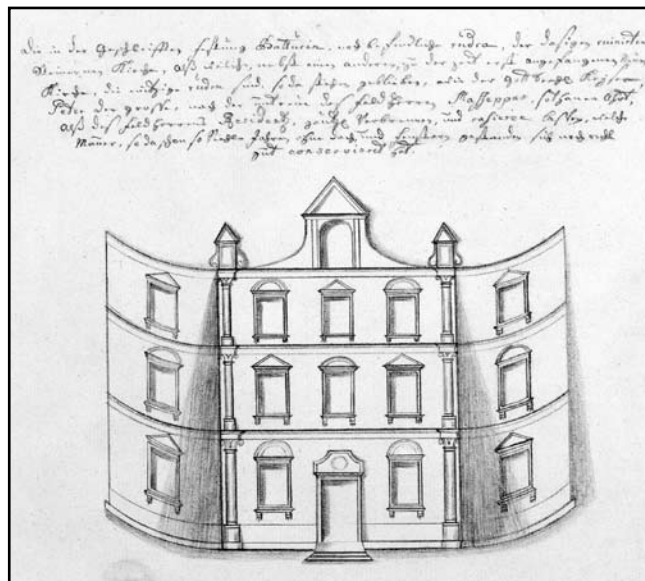 Die in der Geschleifften festung Batturin, noch befindliche rudera, der dasigen ruinirten
Steinernen Kirche, Alß welche, nebst einer anderen, zu der zeit erst angefangenen
Kirche, die einzige rudera sind, so da stehen geblieben, alß der Kayser
Peter der grosse, nach der des feldherren Masseppa, sothanen Ohrt,
Alß des feldherrens Residentz, gäntzl. verbrennen, und rasiren lassen, welche
Mauer, so da schon so viehle Jahren ohne dach und fenstern gestanden sich noch recht
gut conserviret hat.